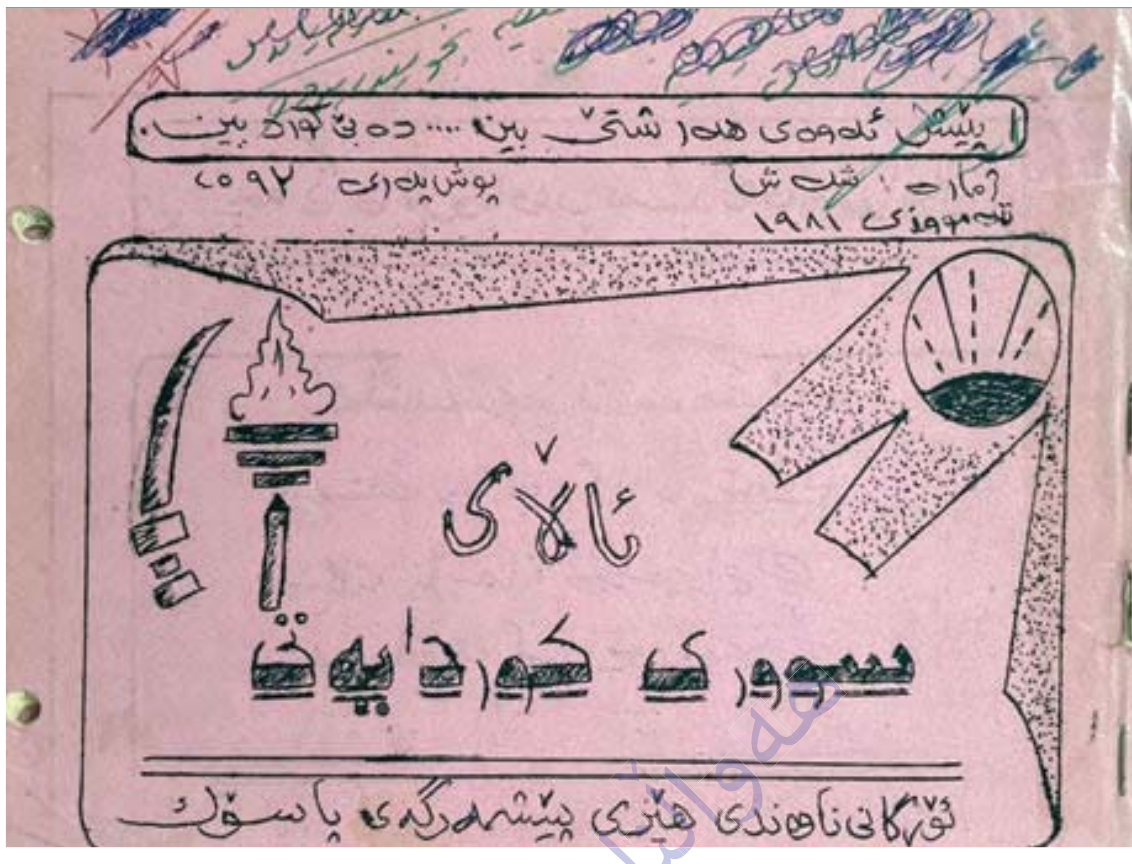 پێش ئەوەی هەر شتێ بین .... دە بێ کورد بین.
ژمارە : شەش پوش پەڕی ٢٥٩٢
تەمووزی ١٩٨١
ئاڵای
سووری کوردایەتی
ئۆرگانی ناوەندی هێزی پێشمەرگەی پاسۆک